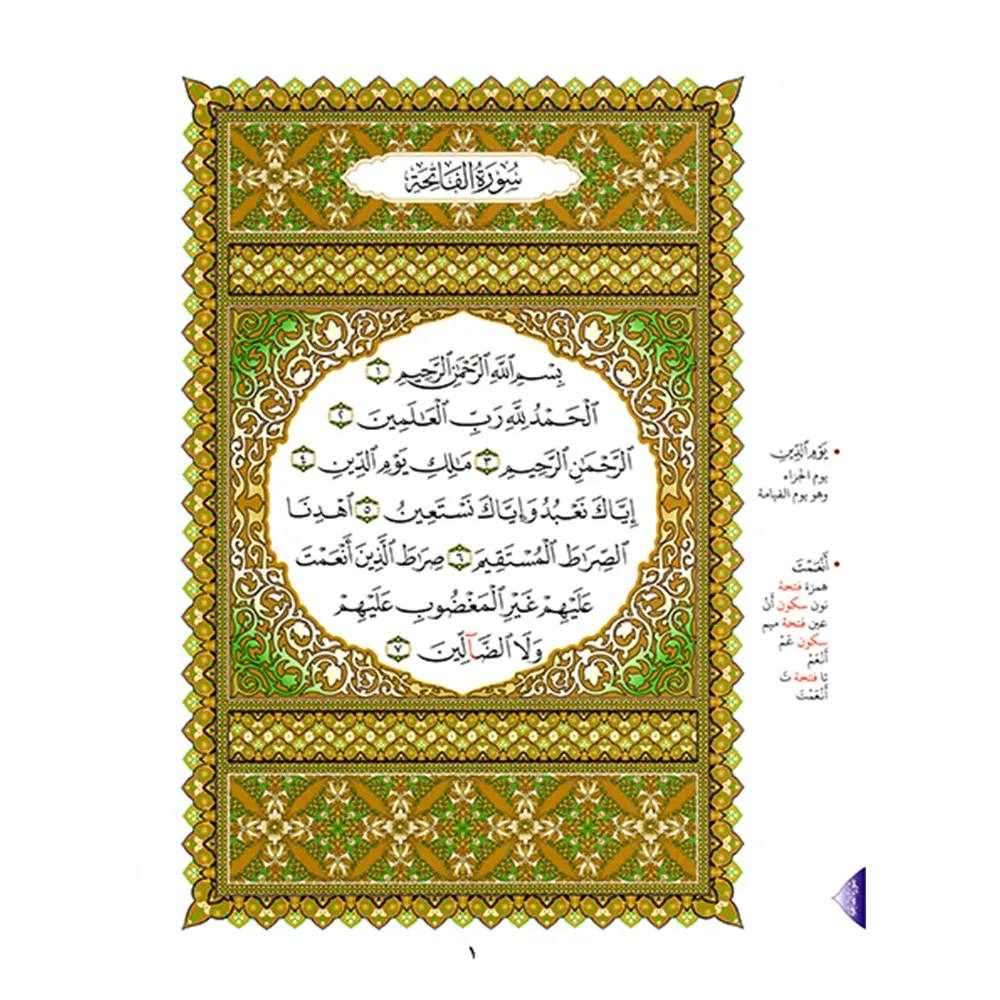 سُورَةُ الفَاتِحَةِ
بِسْمِ ٱللَّهِ ٱلرَّحْمَٰنِ ٱلرَّحِيمِ ١
ٱلْحَمْدُ لِلَّهِ رَبِّ ٱلْعَٰلَمِينَ ٢
ٱلرَّحْمَٰنِ ٱلرَّحِيمِ ٣ مَٰلِكِ يَوْمِ ٱلدِّينِ ٤
إِيَّاكَ نَعْبُدُ وَإِيَّاكَ نَسْتَعِينُ ٥ ٱهْدِنَا
ٱلصِّرَٰطَ ٱلْمُسْتَقِيمَ ٦ صِرَٰطَ ٱلَّذِينَ أَنْعَمْتَ
عَلَيْهِمْ غَيْرِ ٱلْمَغْضُوبِ عَلَيْهِمْ
وَلَا ٱلضَّآلِّينَ ٧
يَوْمِ ٱلدِّينِ
يوم الجزاء
وهو يوم القيامة
أَنْعَمْتَ
همزة فتحة
نون سكون أَنْ
عين فتحة ميم
سكون عَمْ
أَنْعَمْ
تا فتحة تَ
أَنْعَمْتَ
١